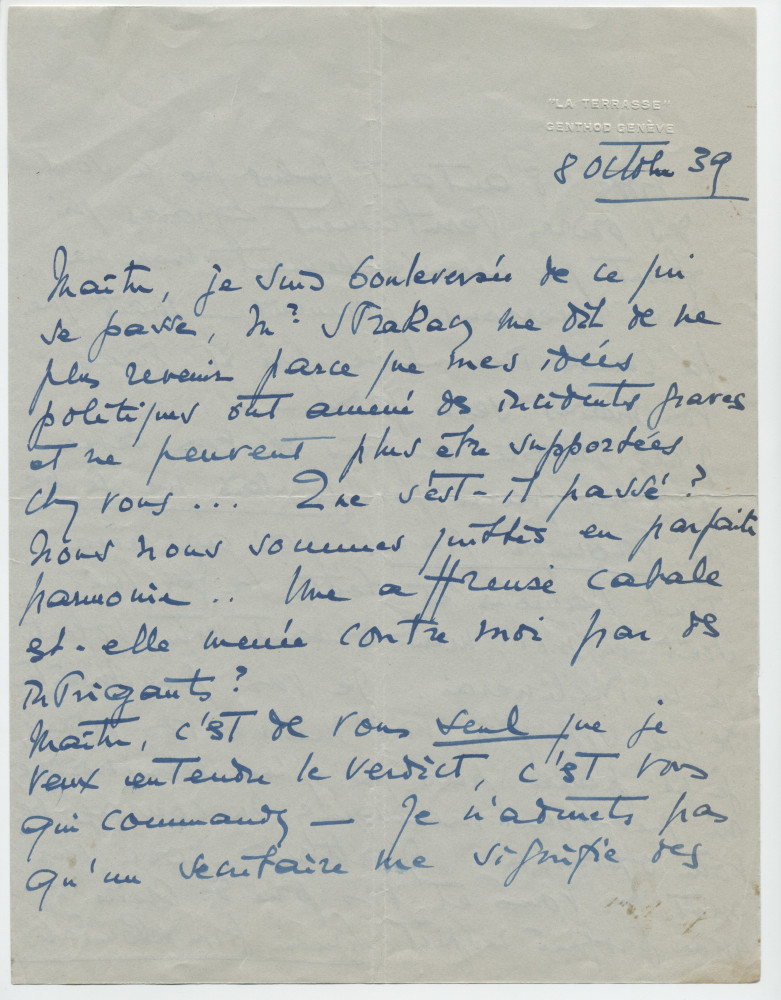 "LA TERRASSE"
GENTHOD GENÈVE
8 Octobre 39
Maître, je suis bouleversée de ce qui
se passe, Mr Strakacz me dit de ne
plus revenir parce que mes idées
politiques ont amené des incidents graves
et ne peuvent plus être supportées
chez vous ... Que s'est-il passé ?
Nous nous sommes quittés en parfaite
harmonie .. Une affreuse cabale
est-elle menée contre moi par des
intrigants ?
Maître, c'est de vous seul que je
veux entendre le verdict, c'est vous
qui commandez — Je n'admets pas
qu'un secrétaire me signifie des